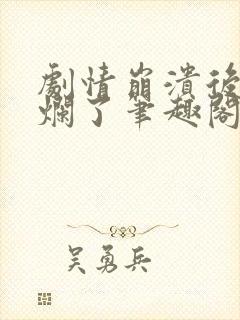 劇情崩潰後
爛了筆趣閣
吳勇兵